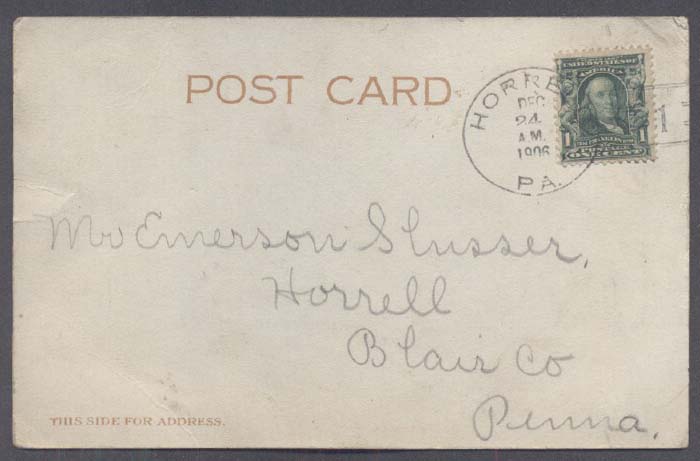 POST CARD
HORRE
DEC
24
A.M.
1906
PA.
UNITED STATES OF
AMERICA
1 1
ONE CENT
1
Mr Emerson Slusser,
Horrell
Blair Co
Penna.
THIS SIDE FOR ADDRESS.